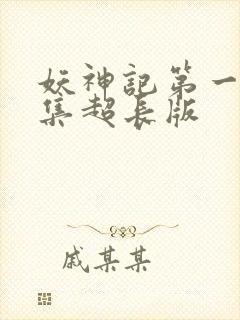 妖神記第一
集超長版
戚某某